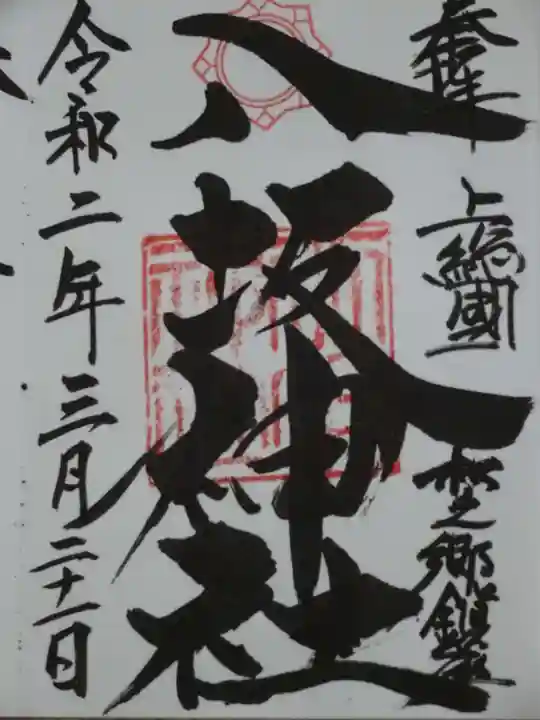 奉拝 上総國 松之郷鎮座
八坂神社
令和二年三月二十一日